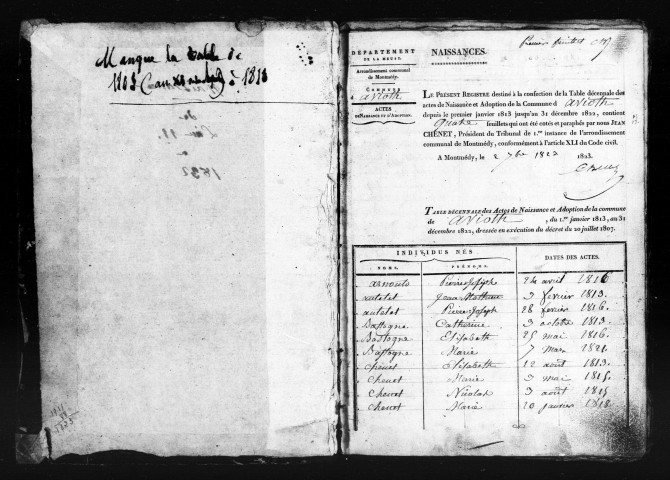 Manque la table de
1803 (an XI au 1813) à 1813
de
l'an 11
a
1832
1823
Premier feuillet
DÉPARTEMENT
DE LA MEUSE.
Arrondissement communal
de Montmédy.
COMMUNE
d avioth
ACTES
DE NAISSANCE ET D'ADOPTION.
NAISSANCES.
LE PRÉSENT REGISTRE destiné à la confection de la Table décennale des
actes de Naissance et Adoption de la Commune d avioth
depuis le premier janvier 1813 jusqu'au 31 décembre 1822, contient
quatre feuillets qui ont été cotés et paraphés par nous JEAN
CHÊNET, Président du Tribunal de 1.re instance de l'arrondissement
communal de Montmédy, conformément à l'article XLI du Code civil.
A Montmédy, le 2 7bre 1823 1823.
TABLE DÉCENNALE des Actes de Naissance et Adoption de la commune
de avioth , du 1.er janvier 1813, au 31
décembre 1822, dressée en exécution du décret du 20 juillet 1807.
INDIVIDUS NÉS
DATES DES ACTES.
NOMS. PRÉNOMS.
arnould Pierre Joseph 24 avril 1816
autelet Jean Mathieu 3 février 1813.
autelet Pierre Joseph 28 février 1816.
Bastogne Catherine 3 octobre 1813.
Bastogne Elisabeth 25 mai 1816.
Bastogne Marie 7 mars 1821.
chenet Elisabeth 12 août 1813.
chenet Marie 3 mai 1815.
chenet Nicolas 3 août 1815
chenet Marie 20 janvier 1818